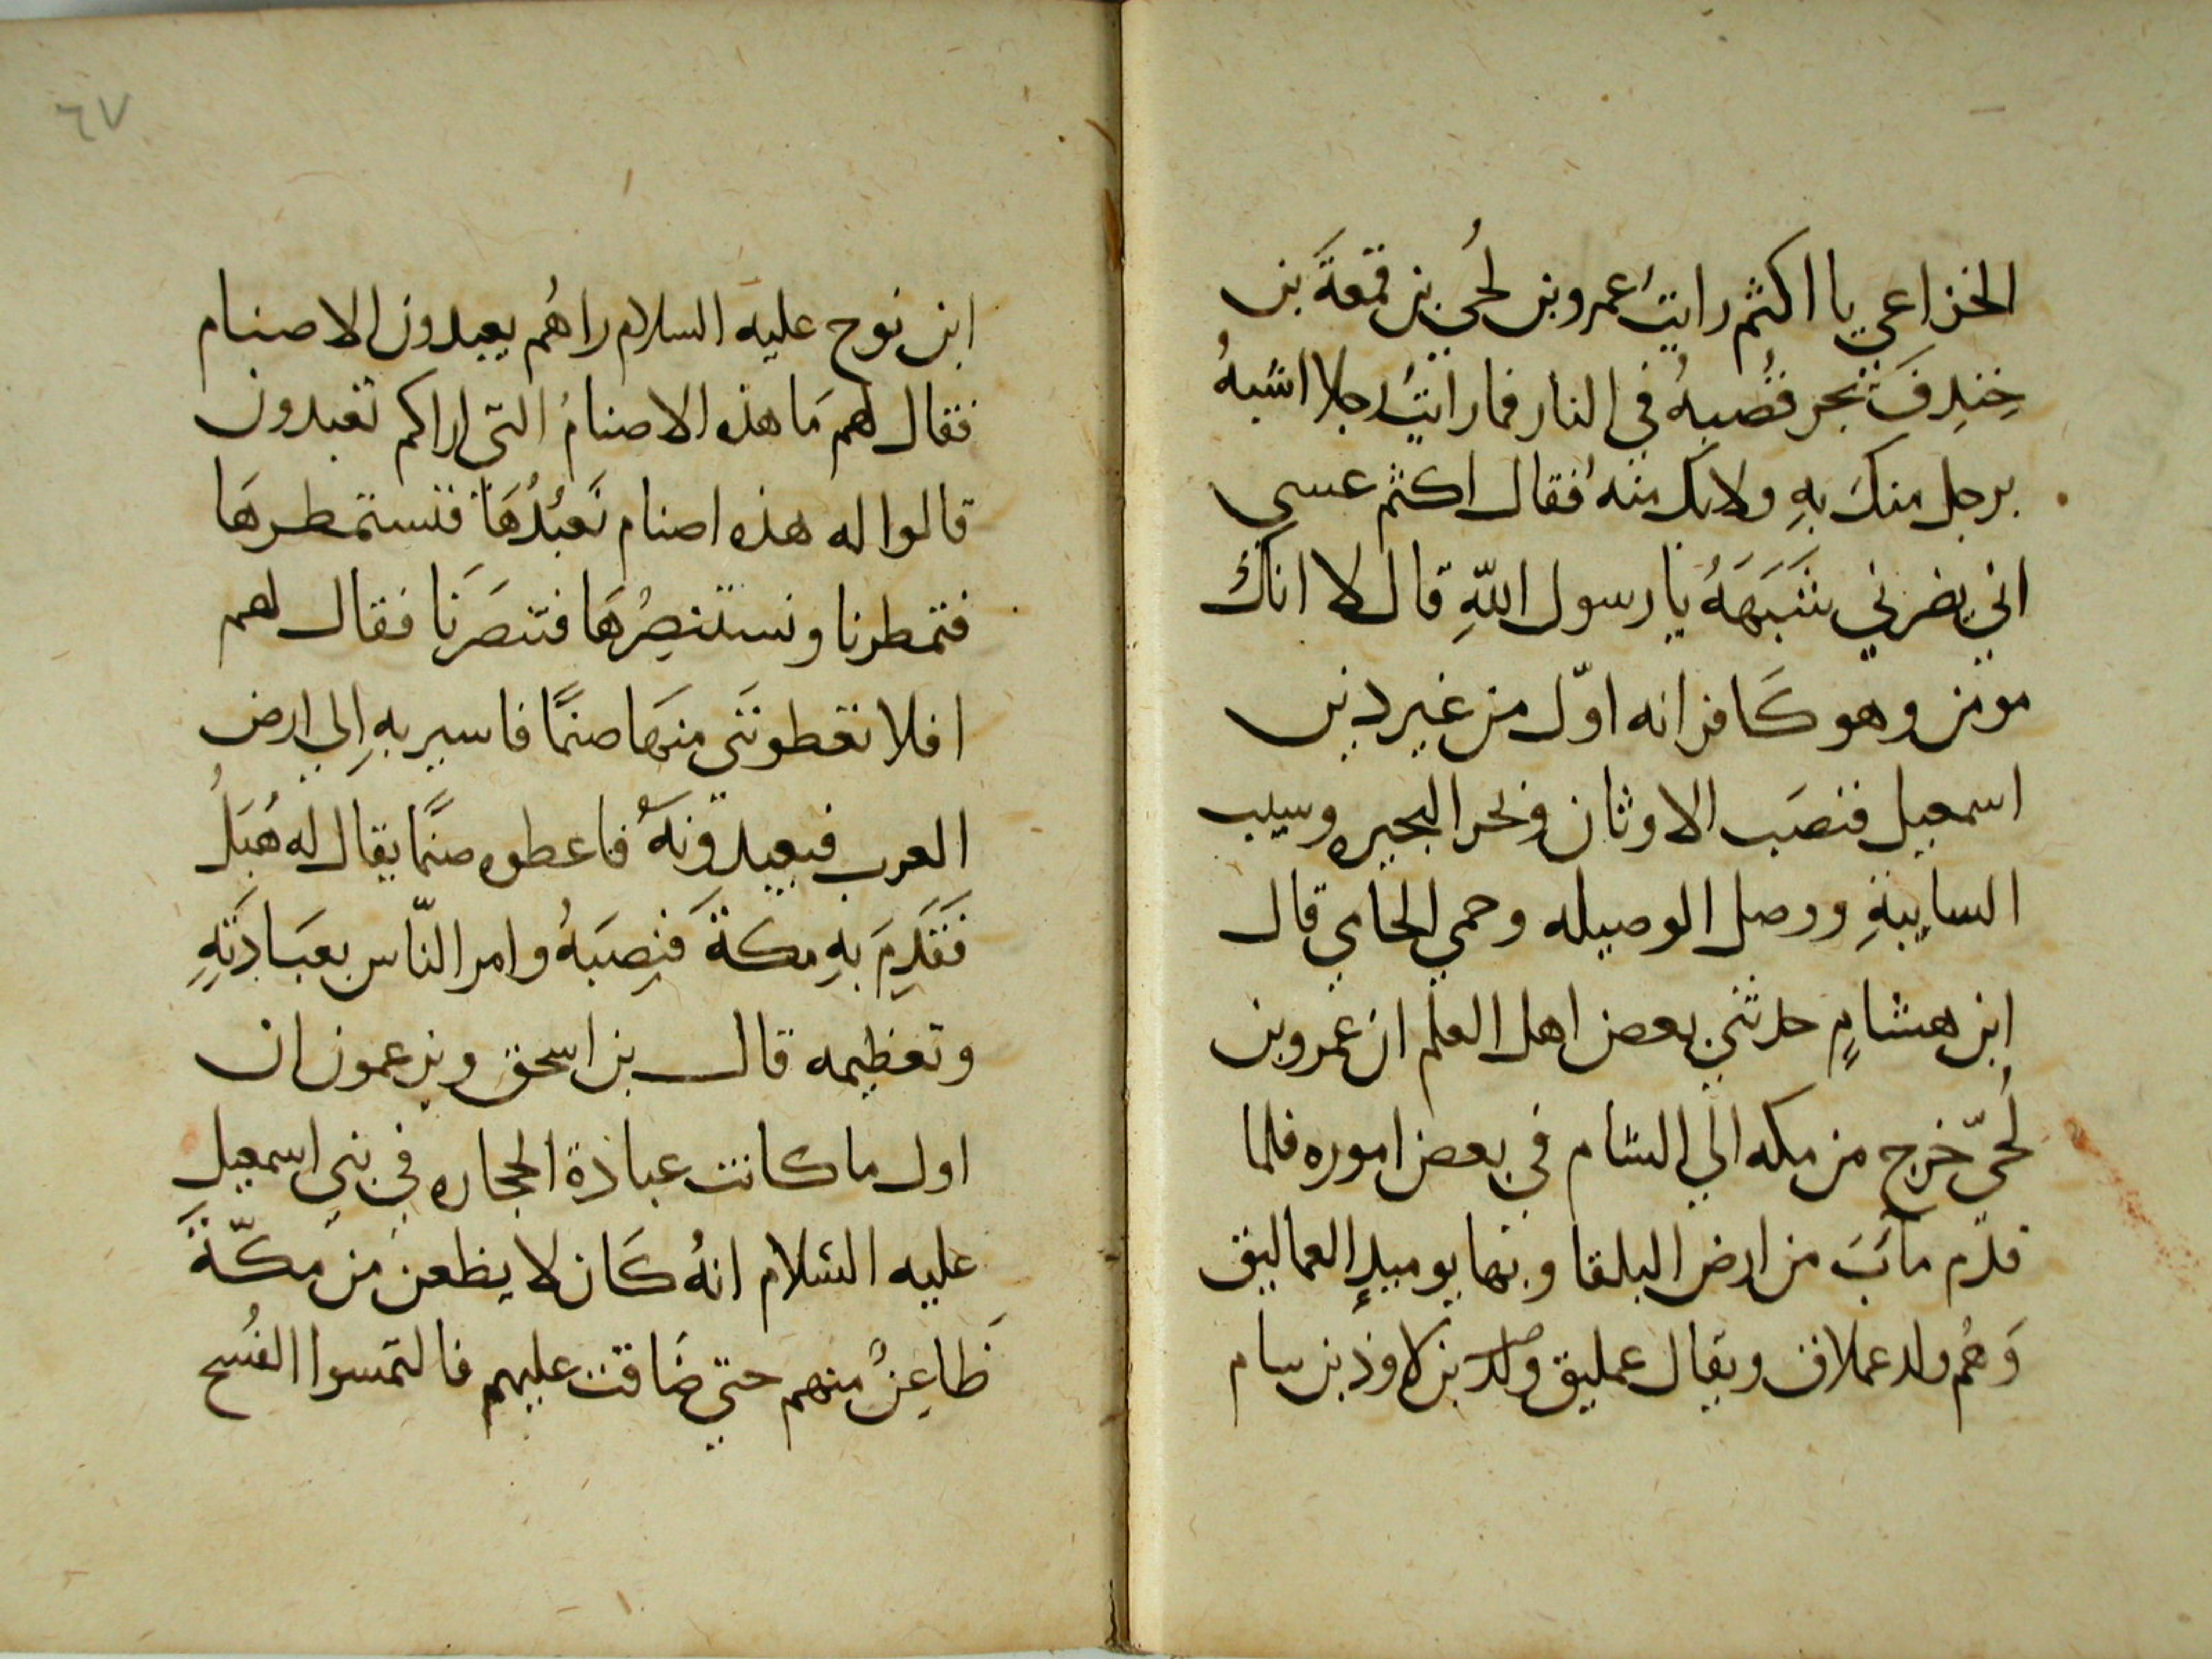 الخزاعي يا اكثم رايتُ عمرو بن لُحَي بن قمَعَةَ بن
خِندِفَ يجر قُصبهُ في النار فما رايتُ رجلا اشبهُ
برجل منكَ بهِ ولا بك منهُ فقال اكثم عسي
اني يضرني شَبَهَهُ يا رسول اللّهِ قال لا انك
مومن وهو كَافر انه اوّل من غير دين
اسمعيل فنصَب الاوثان وبحر البحيره وسيب
السايبةِ ووصل الوصيله وحمي الحامي قال
ابن هشامٍ حدثني بعض اهل العلم ان عمرو بن
لُحيّ خرج من مكه الي الشام في بعض اموره فلما
قدم مآبَ من ارض البلقا وبها يوميذٍ العماليق
وَهُم ولد عملاق ويقال عمليق ولد بن لاوذ بن سام
٦٧
ابن نوح عليه السلام راهُم يعبدون الاصنام
فقال لهم مَا هذه الاصنامُ التي اراكم تعبدون
قالوا له هذه اصنام نَعبُدُهَا فنستمطرهَا
فتمطرنا ونستنصِرُهَا فتنصَرنَا فقال لهم
افلا تعطونني منهَا صنمًا فاسير بهِ اِلي ارض
العرب فيعبدونهُ فاعطوه صنمًا يقال له هُبَلُ
فَقَدِمَ بهِ مكةَ فنصِبَهُ وامر النّاس بعبَادَتِهِ
وتعظيمه قال بن اسحق ويزعمون ان
اول ما كانت عبادة الحجاره في بني اسمعيل
عليه السَلام انهُ كَان لا يظعن من مكّةَ
ظَاعِنٌ منهم حتي ضَاقت عليهم فالتمسوا الفُسح